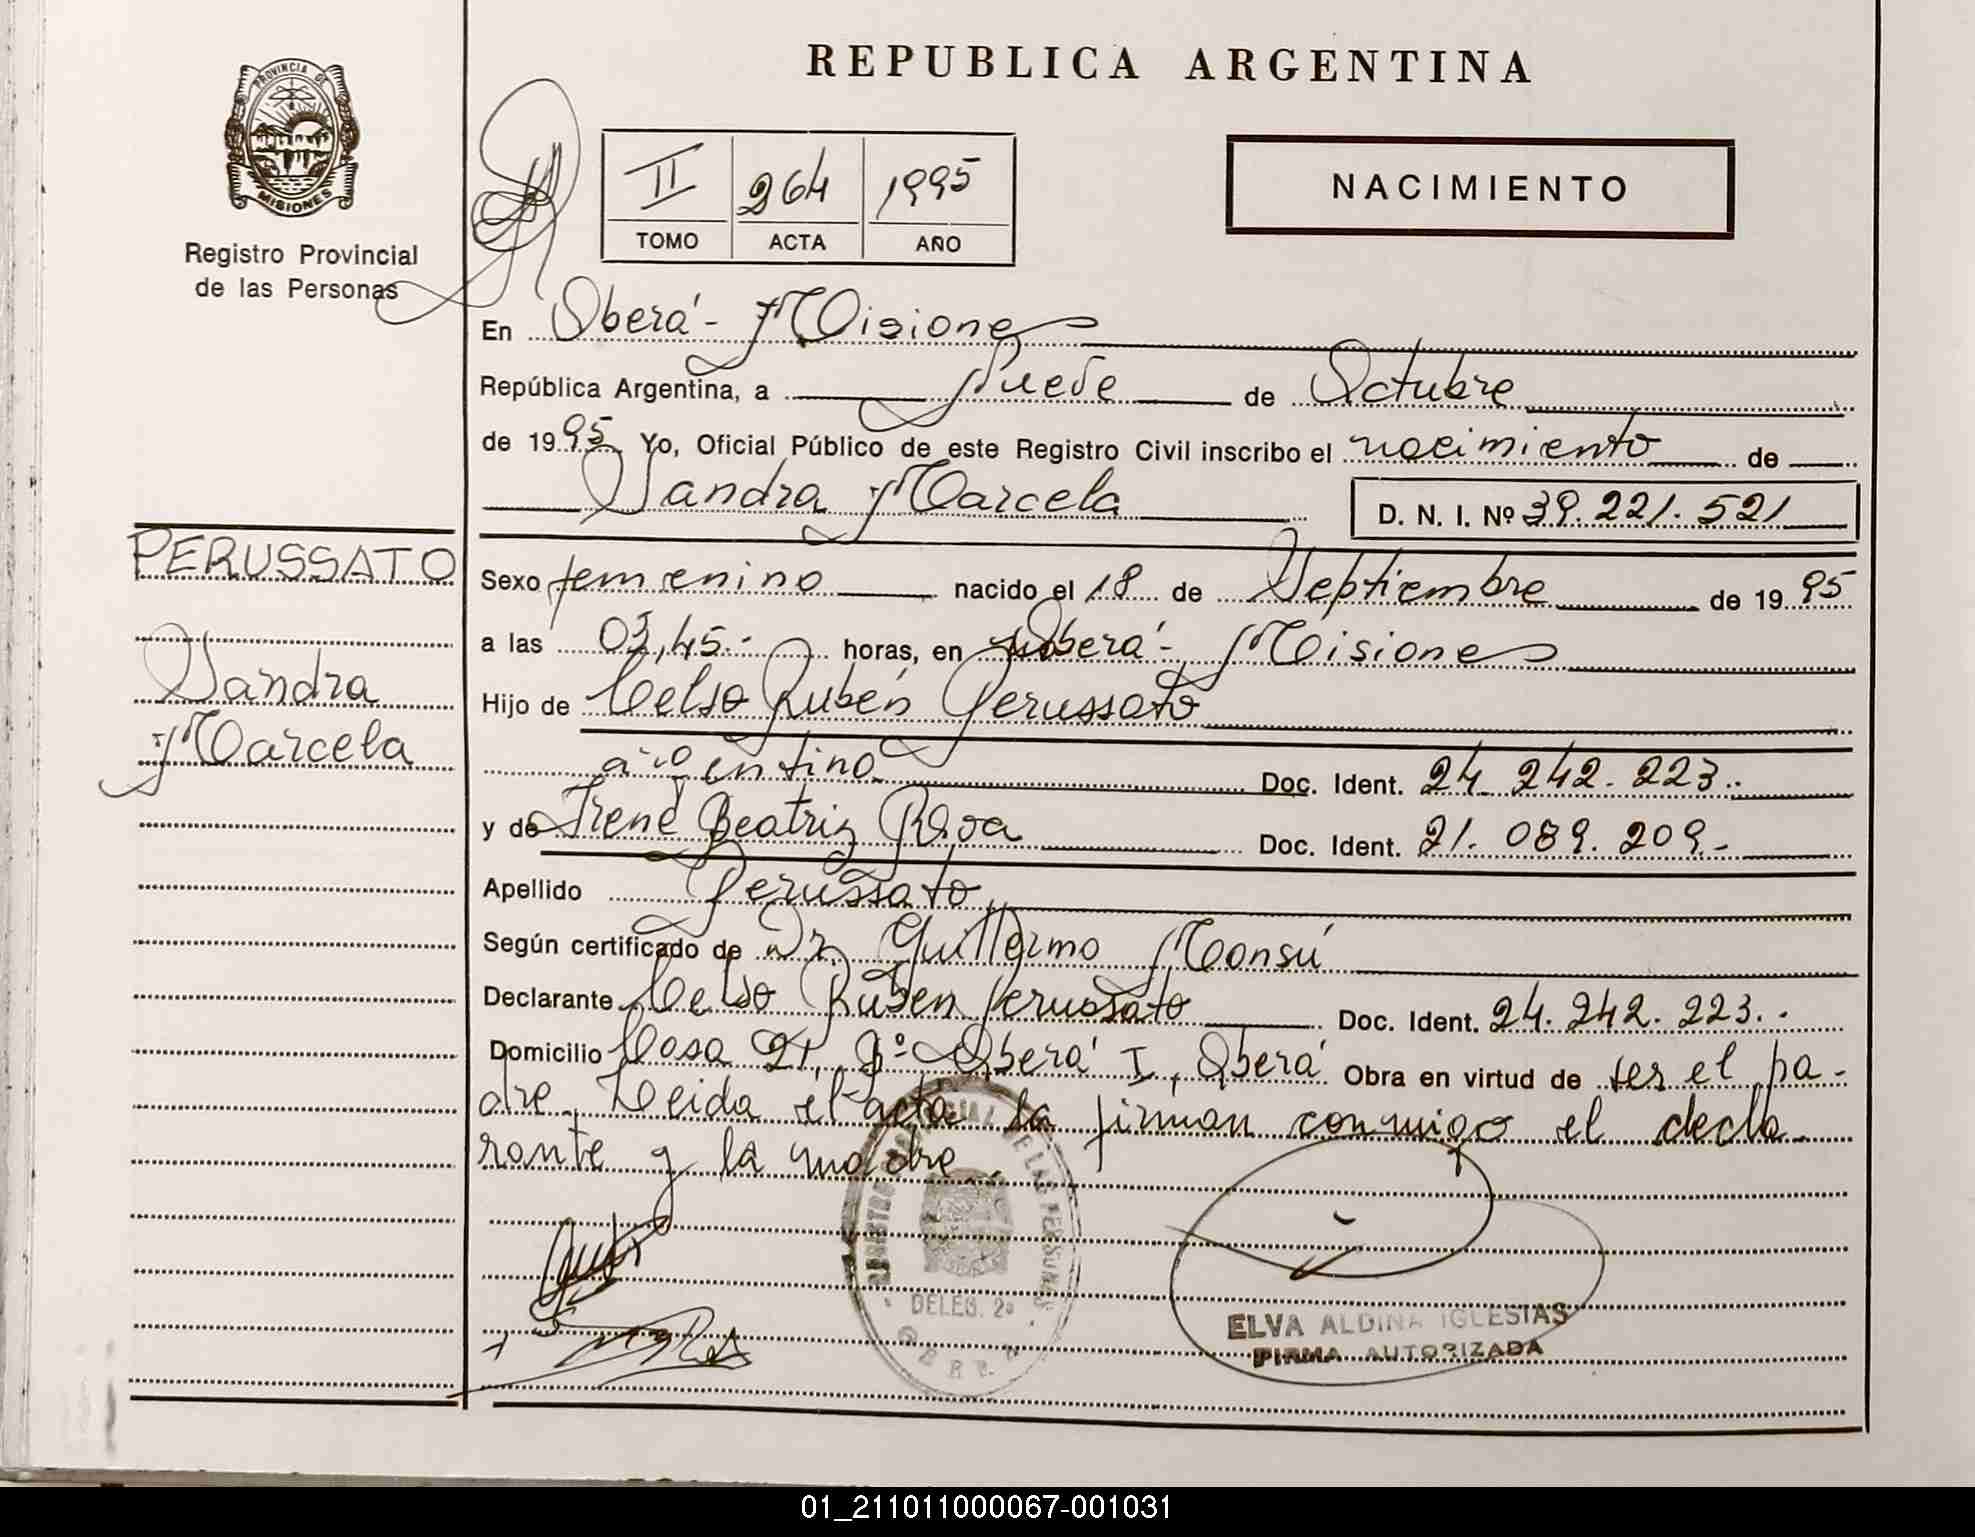 REPUBLICA ARGENTINA
PROVINCIA DE
MISIONES
Registro Provincial
de las Personas
II 264 1995
TOMO ACTA AÑO
NACIMIENTO
En Oberá - Misiones
República Argentina, a Nueve de Octubre
de 1995 Yo, Oficial Público de este Registro Civil inscribo el nacimiento de
Sandra Marcela D. N. I. Nº 39.221.521
PERUSSATO
Sandra
Marcela
Sexo femenino nacido el 18 de Septiembre de 1995
a las 03,45.- horas, en Oberá - Misiones
Hijo de Celso Rubén Perussato
argentino Doc. Ident. 24.242.223.-
y de Irene Beatriz Doc. Ident. 21.089.209.-
Apellido Perussato
Según certificado de Dr. Guillermo Monsú
Declarante Celso Rubén Perussato Doc. Ident. 24.242.223.-
Domicilio Casa 21, Bº Oberá I, Oberá Obra en virtud de ser el pa-
dre. Leida el acta la firman conmigo el decla-
rante y la madre.
REGISTRO PROVINCIAL DE LAS PERSONAS
DELEG. 2ª
OBERA
ELVA ALDINA IGLESIAS
FIRMA AUTORIZADA
01_211011000067-001031